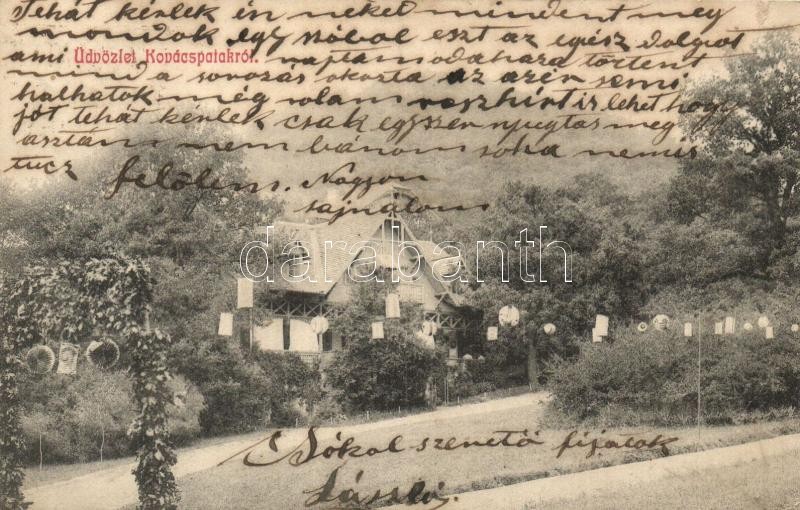 Tehát kérlek én neked mindent meg
mondok egy szóbol eszt az egész dolgot
Üdvözlet Kovácspatakról.
ami rajtam odahaza történt
mind a sorozás okozta az azér semi
halhatok még rolam rosz hírt is lehet hogy
jöt tehát kérlek csak egyszer nyugtas meg
asztán nem bánom soha nem is
tucz felölem. Nagyon
sajnalom
darabanth
Sokal szerető fijatok
László.